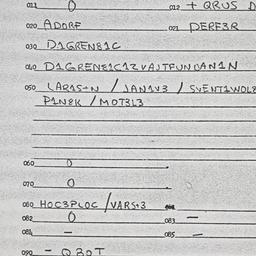 011 0 012 + QRUS D
020 ADORF 021 DERF3R
030 D1GREN81C
040 D1GREN81C1ZVAJTFUNDAN1N
050 LAR1S+N / JAN1V3 / SVENT1WOL8
P1N8K / MOT3L3
060 0
070 0
080 HOC3PLOC / VARS+3
082 0 083 —
084 — 085 —
090 - Q3OT